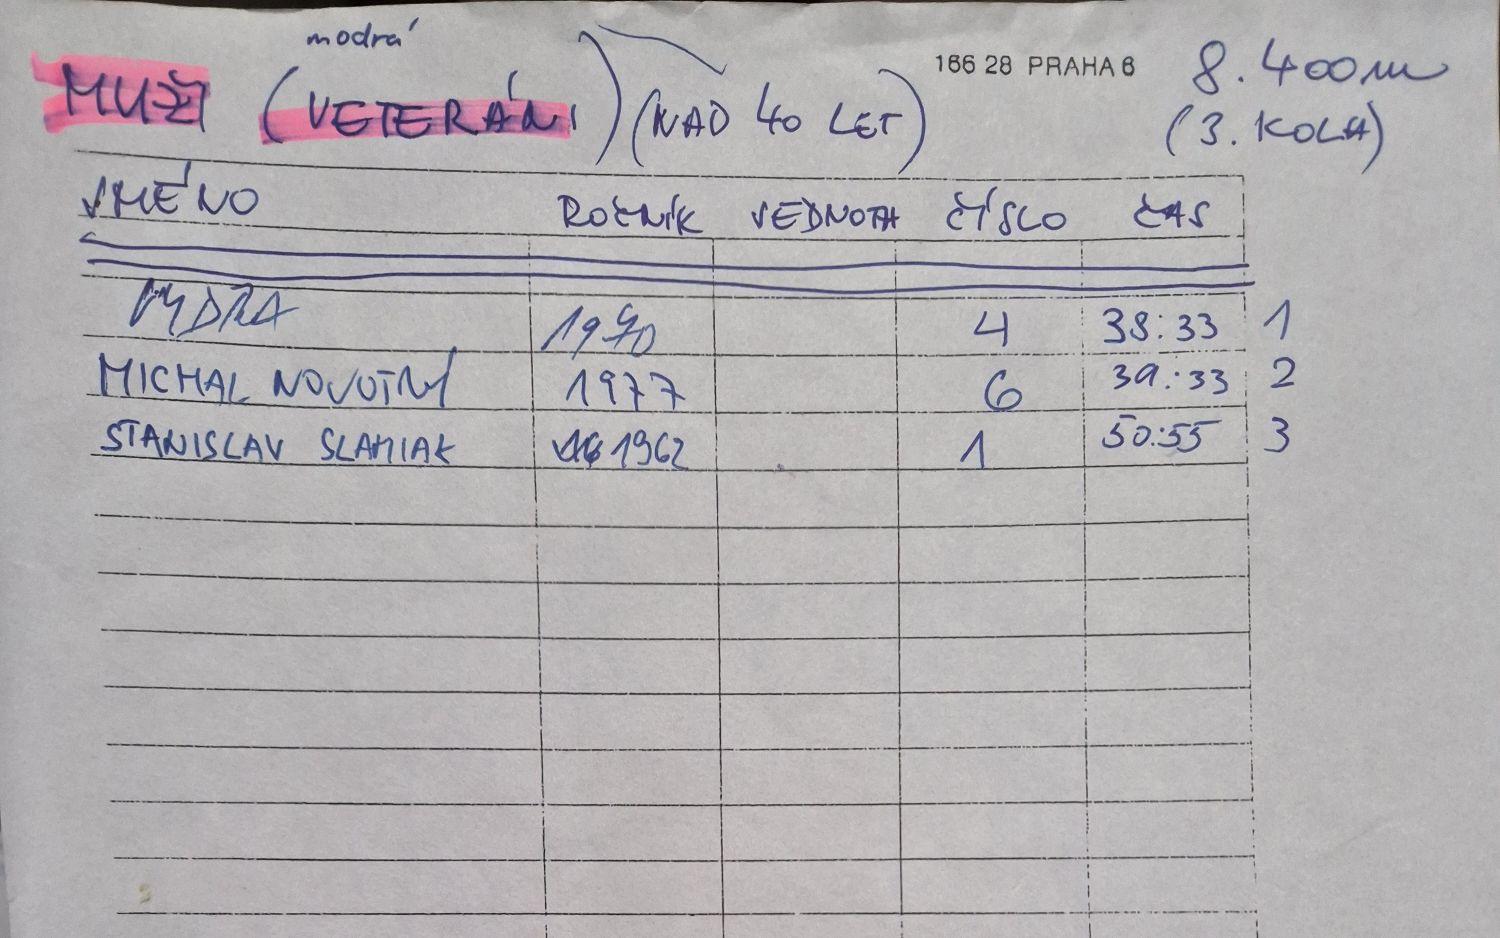 modrá
MUŽI (VETERÁNI) (NAD 40 LET) 166 28 PRAHA 6 8.400m
(3. KOLA)
JMÉNO ROČNÍK JEDNOTA ČÍSLO ČAS
VYDRA 1970 4 38:33 1
MICHAL NOVOTNÝ 1977 6 39:33 2
STANISLAV SLAMIAK 1962 1 50:55 3